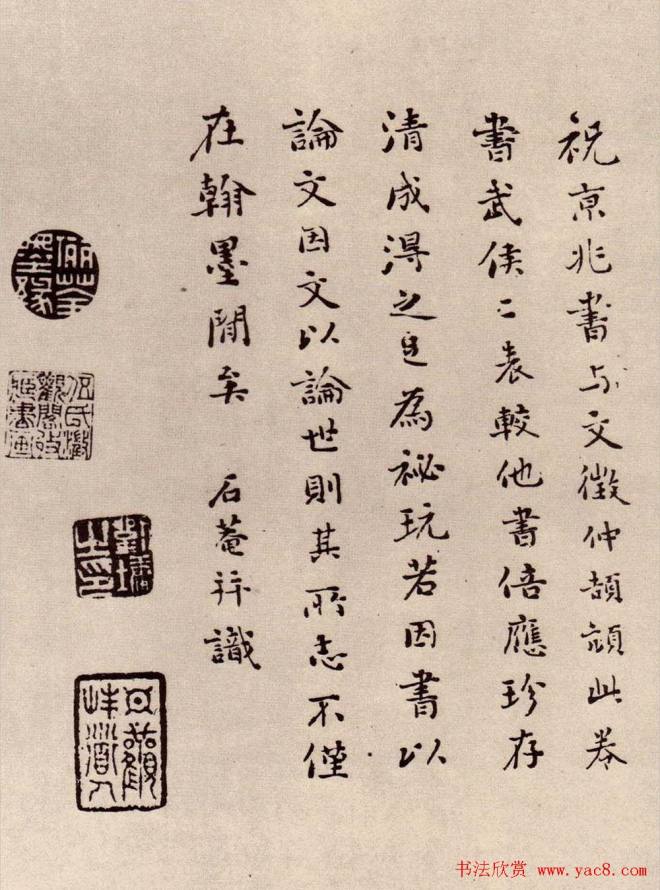 祝京兆書与文徵仲頡頏此卷
書武侯二表較他書倍應珍存
清成得之足為祕玩若因書以
論文因文以論世則其所志不僅
在翰墨間矣 石菴并識
劉墉之印
书法欣赏 www.yac8.com